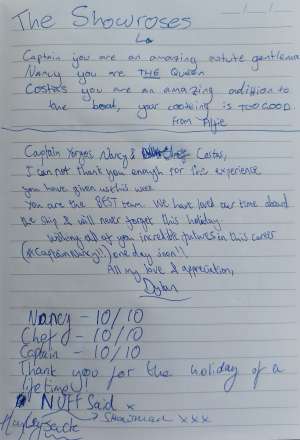 The Showroses
Captain you are an amazing astute gentleman
Nancy you are THE Queen
Costas you are an amazing addition to
the boat, your cooking is TOO GOOD.
From Alfie
Captain Yorgos, Nancy & Chef Costas,
I can not thank you enough for the experience
you have given us this week
You are the BEST team. We have loved our time aboard
the ship & will never forget this holiday.
wishing all of you incredible futures in this career
(#CaptainNancy!!) one day soon!!
All my love & appreciation,
Dylan
Nancy - 10/10
Chef - 10/10
Captain - 10/10
Thank you for the holiday of a
lifetime!
Nuff Said x
Hayley
xxx